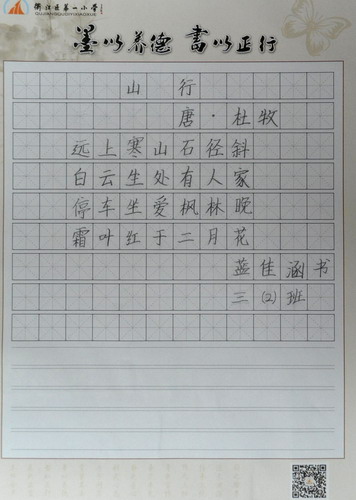 衢江区第一小学
QUJIANGQUDIYIXIAOXUE
墨以养德 書以正行
山行
唐·杜牧
远上寒山石径斜
白云生处有人家
停车坐爱枫林晚
霜叶红于二月花
蓝佳涵书
三(2)班